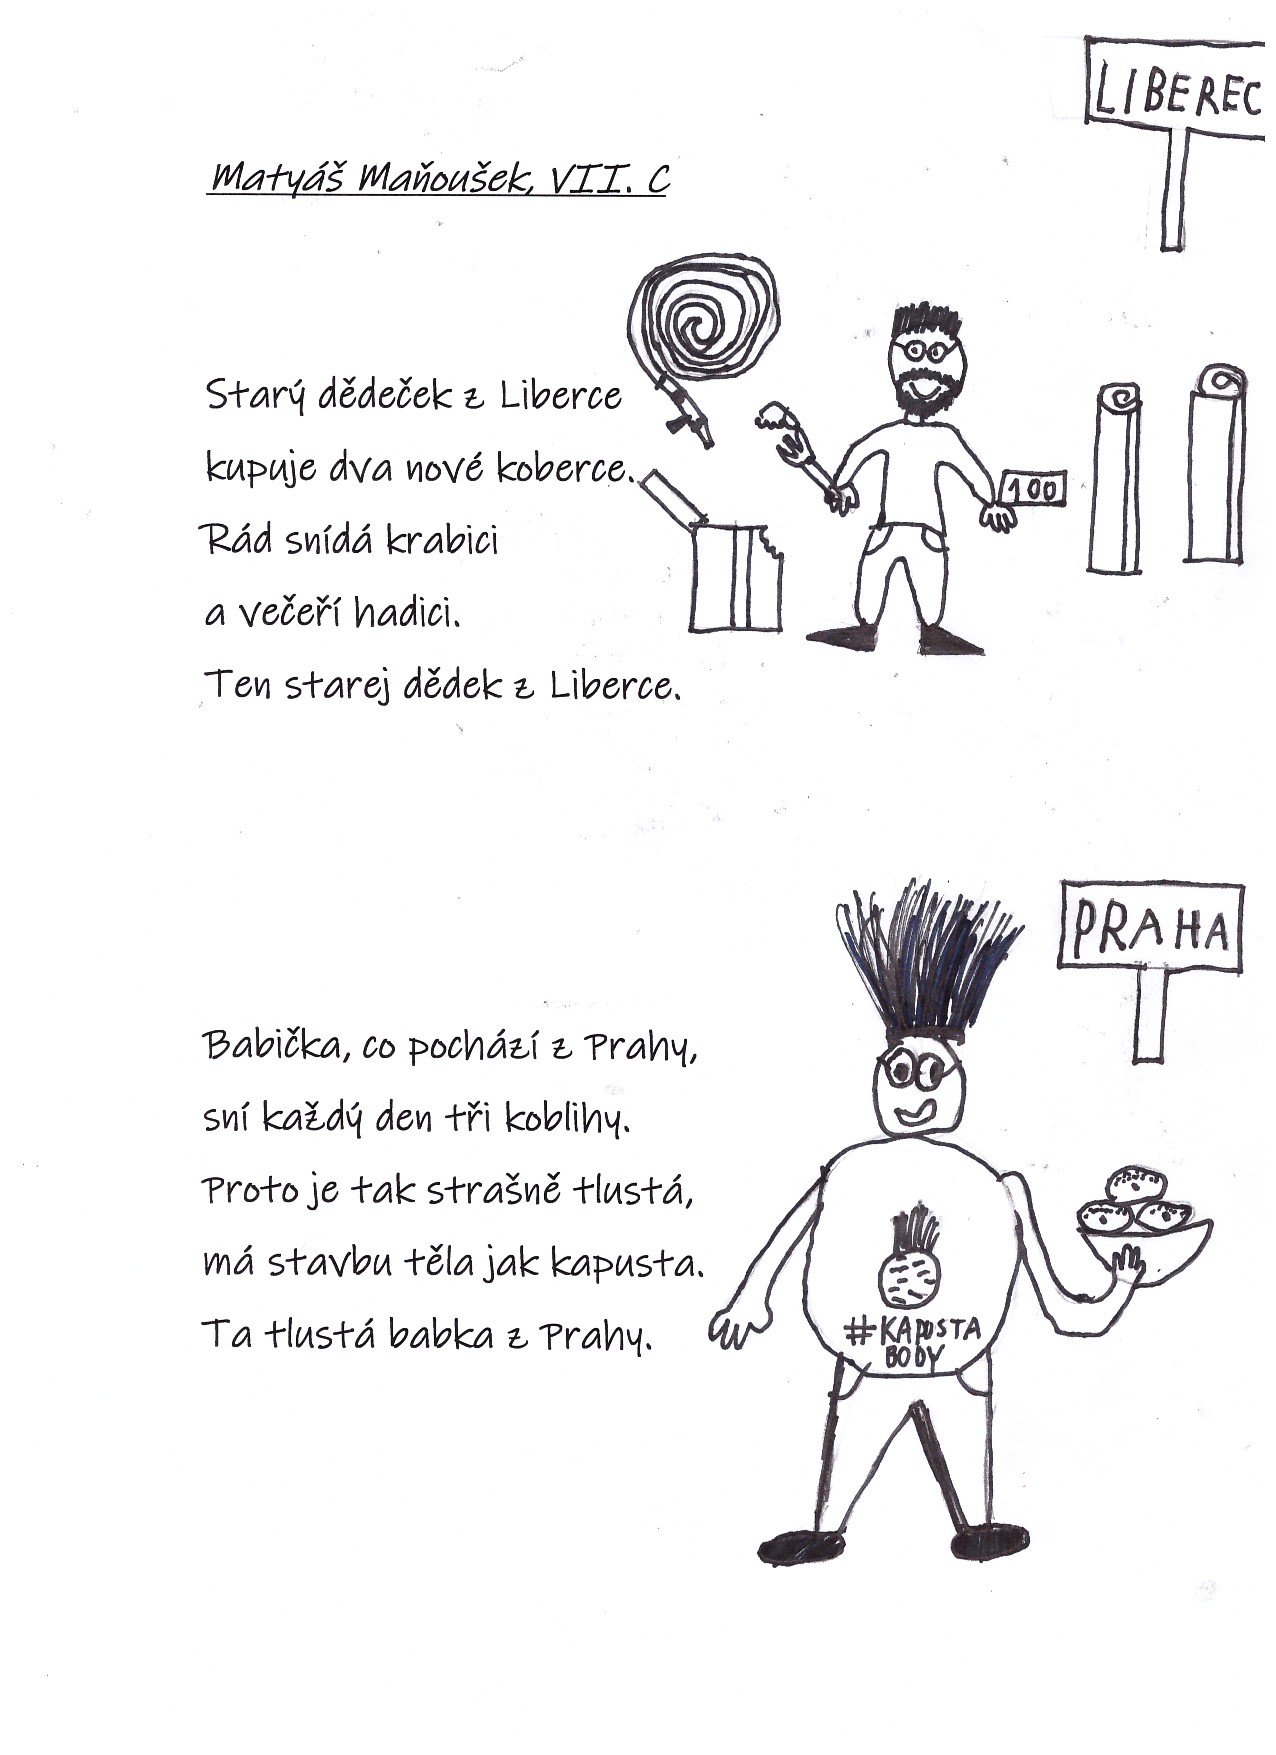 LIBEREC
Matyáš Maňoušek, VII. C
Starý dědeček z Liberce
kupuje dva nové koberce.
100
Rád snídá krabici
a večeří hadici.
Ten starej dědek z Liberce.
PRAHA
Babička, co pochází z Prahy,
sní každý den tři koblihy.
Proto je tak strašně tlustá,
má stavbu těla jak kapusta.
Ta tlustá babka z Prahy.
#KAPUSTA
BODY